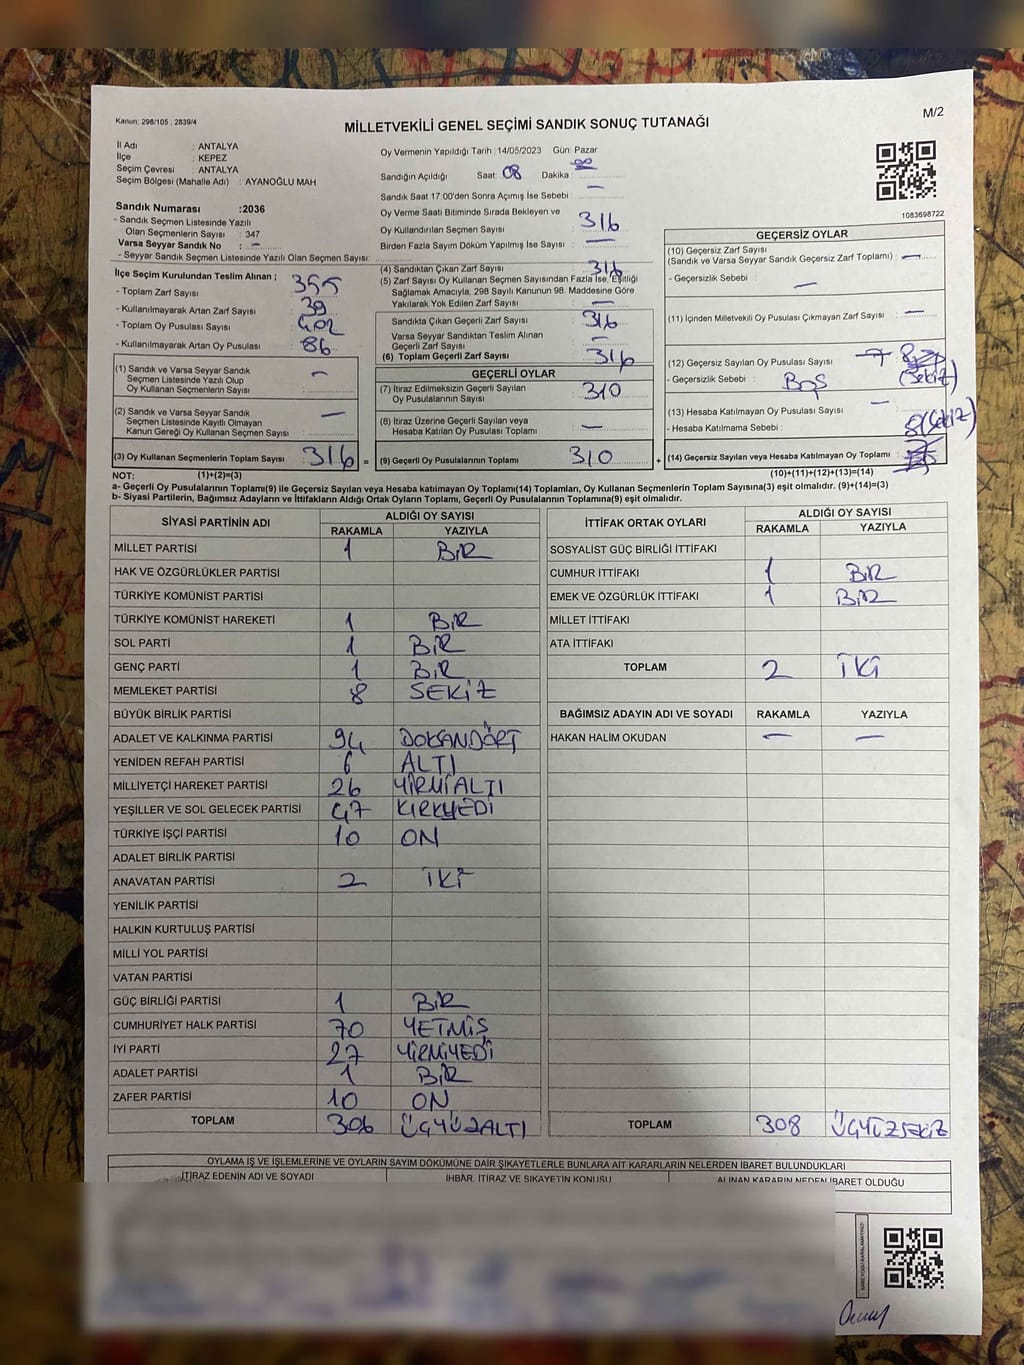 M/2
Kanun: 298/105 , 2839/4
MİLLETVEKİLİ GENEL SEÇİMİ SANDIK SONUÇ TUTANAĞI
İl Adı : ANTALYA
İlçe : KEPEZ
Seçim Çevresi : ANTALYA
Seçim Bölgesi (Mahalle Adı) : AYANOĞLU MAH
Oy Vermenin Yapıldığı Tarih :14/05/2023 Gün: Pazar
Sandığın Açıldığı Saat: 08 Dakika : 00
Sandık Saat 17:00'den Sonra Açımış İse Sebebi : —
Oy Verme Saati Bitiminde Sırada Bekleyen ve
Oy Kullandırılan Seçmen Sayısı : 316
Birden Fazla Sayım Döküm Yapılmış İse Sayısı : —
Sandık Numarası :2036
- Sandık Seçmen Listesinde Yazılı
Olan Seçmenlerin Sayısı : 347
Varsa Seyyar Sandık No : —
- Seyyar Sandık Seçmen Listesinde Yazılı Olan Seçmenlerin Sayısı:
1083698722
İlçe Seçim Kurulundan Teslim Alınan ;
- Toplam Zarf Sayısı : 355
- Kullanılmayarak Artan Zarf Sayısı : 39
- Toplam Oy Pusulası Sayısı : 402
- Kullanılmayarak Artan Oy Pusulası : 86
(1) Sandık ve Varsa Seyyar Sandık —
Seçmen Listesinde Yazılı Olup
Oy Kullanan Seçmenlerin Sayısı :
(2) Sandık ve Varsa Seyyar Sandık —
Seçmen Listesinde Kayıtlı Olmayan
Kanun Gereği Oy Kullanan Seçmen Sayısı :
(3) Oy Kullanan Seçmenlerin Toplam Sayısı : 316 =
(4) Sandıktan Çıkan Zarf Sayısı : 316
(5) Zarf Sayısı Oy Kullanan Seçmen Sayısından Fazla İse, Eşitliği
Sağlamak Amacıyla, 298 Sayılı Kanunun 98. Maddesine Göre
Yakılarak Yok Edilen Zarf Sayısı : —
Sandıkta Çıkan Geçerli Zarf Sayısı : 316
Varsa Seyyar Sandıktan Teslim Alınan
Geçerli Zarf Sayısı : —
(6) Toplam Geçerli Zarf Sayısı : 316
GEÇERLİ OYLAR
(7) İtiraz Edilmeksizin Geçerli Sayılan
Oy Pusulalarının Sayısı : 310
(8) İtiraz Üzerine Geçerli Sayılan veya
Hesaba Katılan Oy Pusulası Toplamı : —
(9) Geçerli Oy Pusulalarının Toplamı : 310 +
GEÇERSİZ OYLAR
(10) Geçersiz Zarf Sayısı
(Sandık ve Varsa Seyyar Sandık Geçersiz Zarf Toplamı) : —
- Geçersizlik Sebebi : —
(11) İçinden Milletvekili Oy Pusulası Çıkmayan Zarf Sayısı : —
(12) Geçersiz Sayılan Oy Pusulası Sayısı : 8
- Geçersizlik Sebebi : BOŞ (Sekiz)
(13) Hesaba Katılmayan Oy Pusulası Sayısı : —
- Hesaba Katılmama Sebebi : 8(Sekiz)
(14) Geçersiz Sayılan veya Hesaba Katılmayan Oy Toplamı :
NOT: (1)+(2)=(3)
(10)+(11)+(12)+(13)=(14)
a- Geçerli Oy Pusulalarının Toplamı(9) ile Geçersiz Sayılan veya Hesaba katılmayan Oy Toplamı(14) Toplamları, Oy Kullanan Seçmenlerin Toplam Sayısına(3) eşit olmalıdır. (9)+(14)=(3)
b- Siyasi Partilerin, Bağımsız Adayların ve İttifakların Aldığı Ortak Oyların Toplamı, Geçerli Oy Pusulalarının Toplamına(9) eşit olmalıdır.
SİYASİ PARTİNİN ADI ALDIĞI OY SAYISI
RAKAMLA YAZIYLA
MİLLET PARTİSİ 1 BİR
HAK VE ÖZGÜRLÜKLER PARTİSİ
TÜRKİYE KOMÜNİST PARTİSİ
TÜRKİYE KOMÜNİST HAREKETİ 1 BİR
SOL PARTİ 1 BİR
GENÇ PARTİ 1 BİR
MEMLEKET PARTİSİ 8 SEKİZ
BÜYÜK BİRLİK PARTİSİ
ADALET VE KALKINMA PARTİSİ 94 DOKSANDÖRT
YENİDEN REFAH PARTİSİ 6 ALTI
MİLLİYETÇİ HAREKET PARTİSİ 26 YİRMİALTI
YEŞİLLER VE SOL GELECEK PARTİSİ 47 KIRKYEDİ
TÜRKİYE İŞÇİ PARTİSİ 10 ON
ADALET BİRLİK PARTİSİ
ANAVATAN PARTİSİ 2 İKİ
YENİLİK PARTİSİ
HALKIN KURTULUŞ PARTİSİ
MİLLİ YOL PARTİSİ
VATAN PARTİSİ
GÜÇ BİRLİĞİ PARTİSİ 1 BİR
CUMHURİYET HALK PARTİSİ 70 YETMİŞ
İYİ PARTİ 27 YİRMİYEDİ
ADALET PARTİSİ 1 BİR
ZAFER PARTİSİ 10 ON
TOPLAM 306 ÜÇYÜZALTI
İTTİFAK ORTAK OYLARI ALDIĞI OY SAYISI
RAKAMLA YAZIYLA
SOSYALİST GÜÇ BİRLİĞİ İTTİFAKI
CUMHUR İTTİFAKI 1 BİR
EMEK VE ÖZGÜRLÜK İTTİFAKI 1 BİR
MİLLET İTTİFAKI
ATA İTTİFAKI
TOPLAM 2 İKİ
BAĞIMSIZ ADAYIN ADI VE SOYADI RAKAMLA YAZIYLA
HAKAN HALİM OKUDAN — —
TOPLAM 308 ÜÇYÜZSEKİZ
OYLAMA İŞ VE İŞLEMLERİNE VE OYLARIN SAYIM DÖKÜMÜNE DAİR ŞİKAYETLERLE BUNLARA AİT KARARLARIN NELERDEN İBARET BULUNDUKLARI
İTİRAZ EDENİN ADI VE SOYADI İHBAR, İTİRAZ VE ŞİKAYETİN KONUSU ALINAN KARARIN NEDEN İBARET OLDUĞU